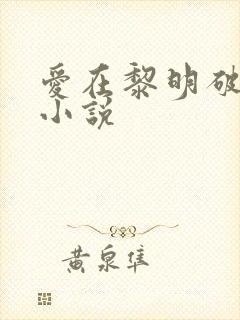 愛在黎明破
小説
黃泉隼